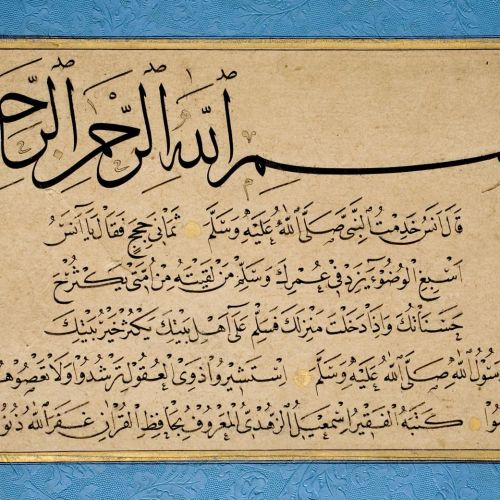 سم الله الرحمن الرح
قَالَ أَنَسُ خَدِمْتُ النَّبِيَّ صَلَّى اللهُ عَلَيْهِ وَسَلَّمَ ثَمَانِيَ حِجَجٍ فَقَالَ يَا أَنَسُ
اَسْبِغِ الْوُضُوءَ يُزَدْ فِي عُمْرِكَ وَسَلِّمْ مَنْ لَقِيتَهُ مِنْ اُمَّتِي يَكْثُرْ ح
حَسَنَاتُكَ وَاِذَا دَخَلْتَ مَنْزِلَكَ فَسَلِّمْ عَلَى اَهْلِ بَيْتِكَ يَكْثُرْ خَيْرُ بَيْتِكَ
رَسُولُ اللهِ صَلَّى اللهُ عَلَيْهِ وَسَلَّمَ اِسْتَشِيرُوا ذَوِي الْعُقُولِ تَرْشُدُوا وَلَا تَعْصُوه
كَتَبَهُ الْفَقِيرُ اِسْمٰعِيلُ الزُّهْدِي الْمَعْرُوفُ بِحَافِظِ الْقُرْآنِ غَفَرَ اللهُ ذُنُو